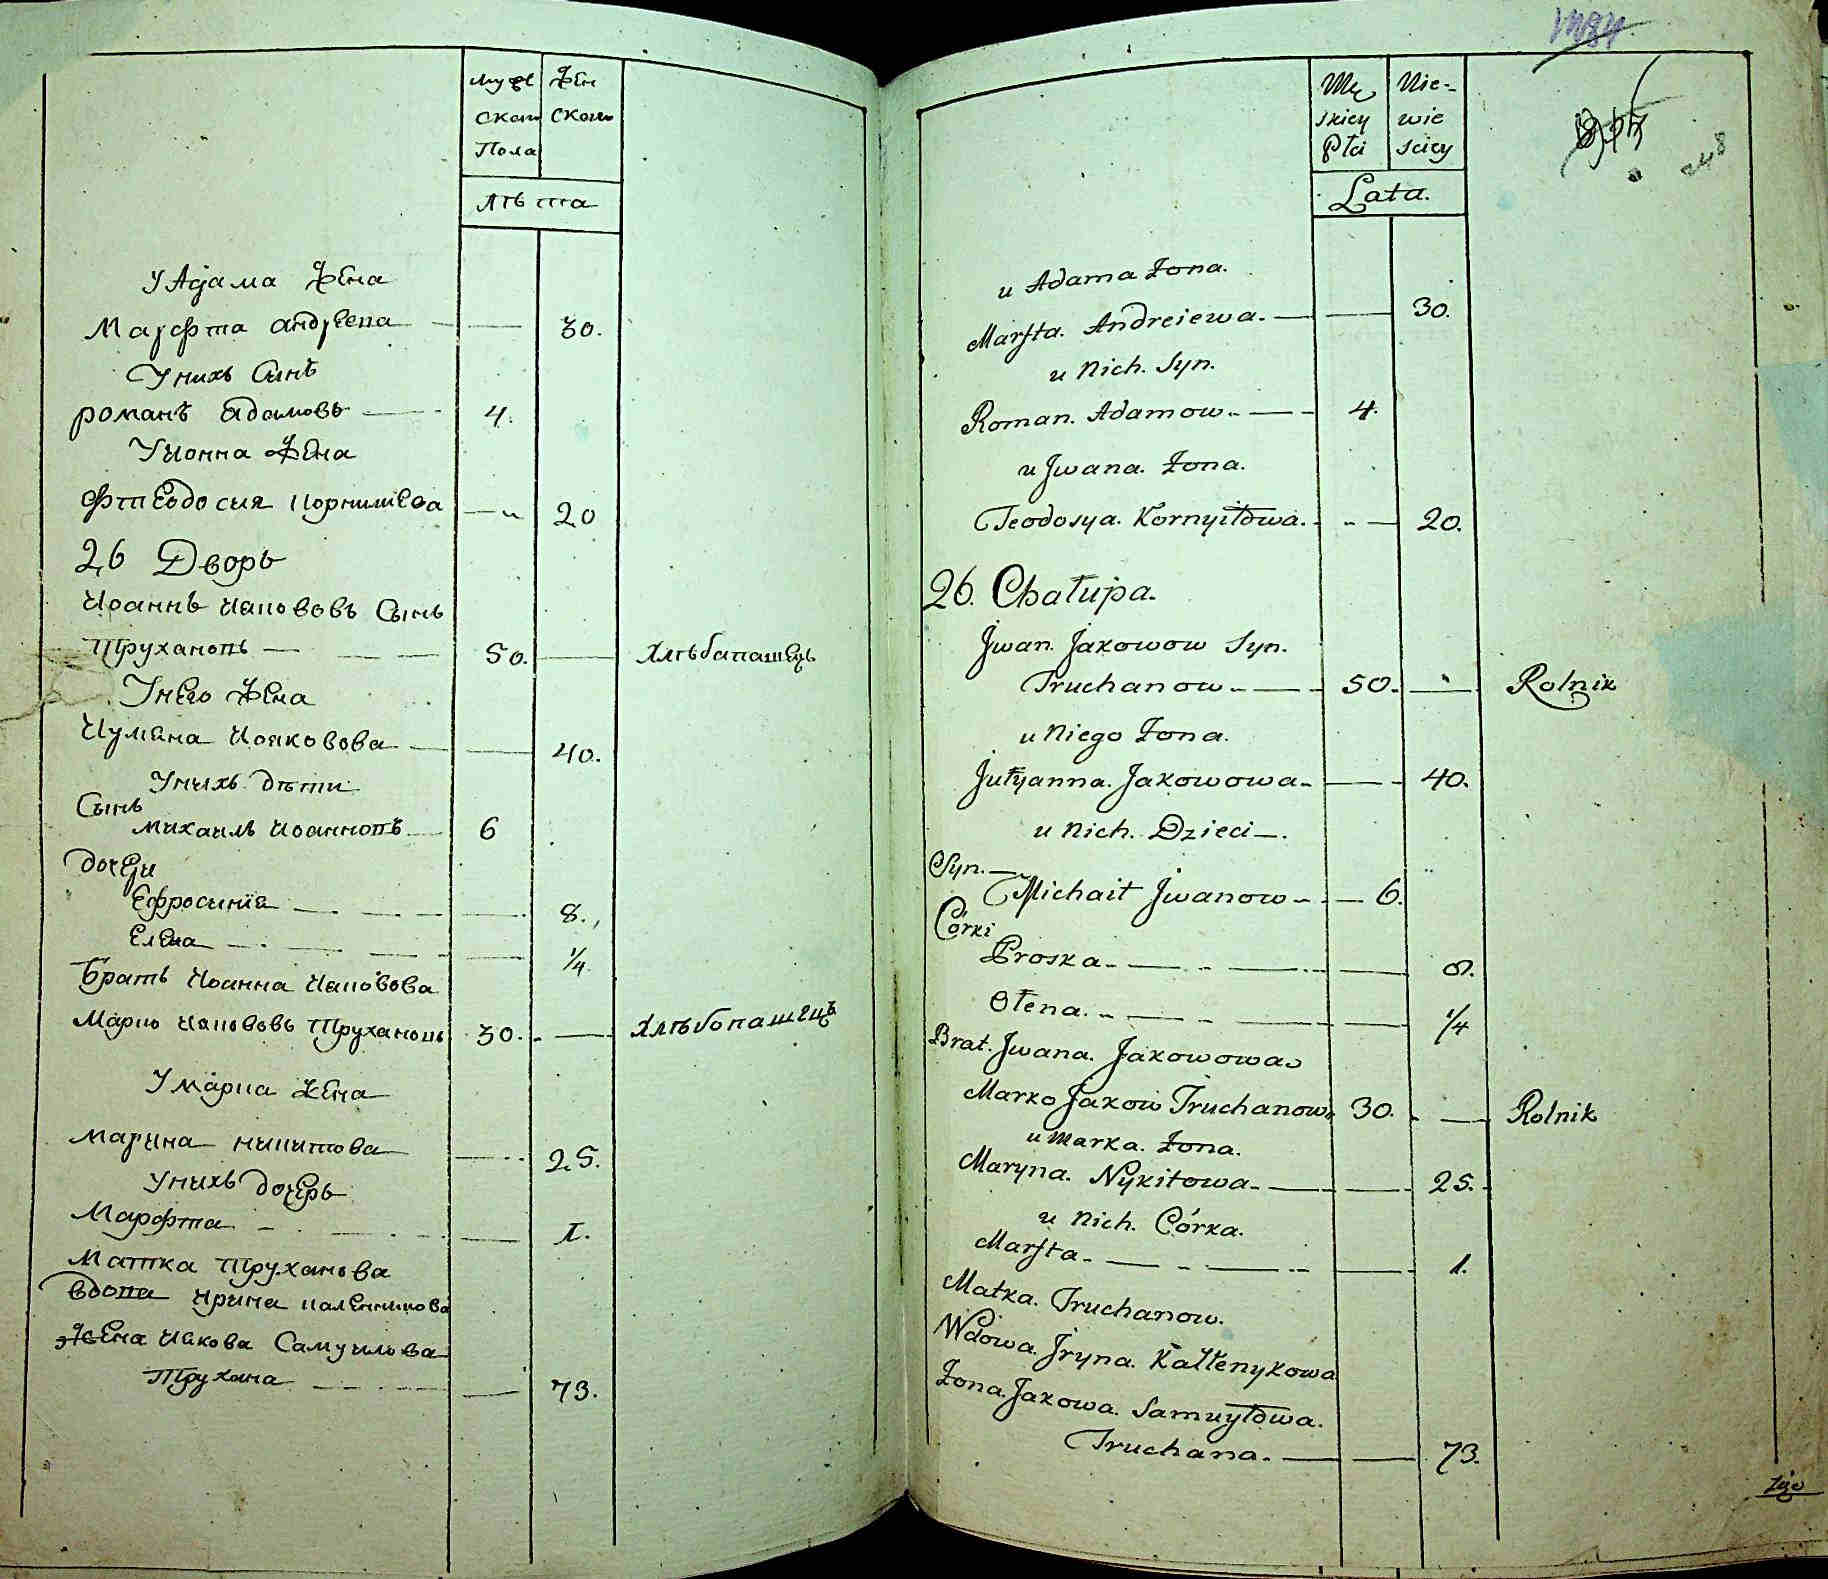 Мужескаго Пола
Женскаго
Лѣта
У Адама Жена
Марфта Андреева 30.
У нихъ Сынъ
романъ Адамовъ 4.
У Иоанна Жена
Фтеодосия Корнилиева 20
26 Дворъ
Иоаннъ Иаκововъ Сынъ
Трухановъ 50. Хлѣбапашецъ
У него Жена
Иулиана Иояковова 40.
У нихъ дѣти
Сынъ
Михаилъ Иоанновъ 6
дочери
Ефросиния 8.
Елена 1/4.
Братъ Иоанна Иаковова
Марко Иакововъ Трухановъ 30. Хлѣбопашецъ
У Марка Жена
Марина Никитова 25.
У нихъ дочерь
Марфта 1.
Матка Труханова
вдова Ирина Каленикова
Жена Иакова Самуилова
Трухана 73.
Męskiey Płci
Niewiesciey
Lata.
248
u Adama Żona.
Marfta. Andreiewa. 30.
u Nich. Syn.
Roman. Adamow. 4.
u Jwana. Żona.
Teodosya. Kornyiłowa. 20.
26. Chałupa.
Jwan. Jakowow Syn.
Truchanow 50. Rolnik
u Niego Żona.
Jułyanna. Jakowowa 40.
u Nich. Dzieci.
Syn.
Michaił Jwanow 6.
Córki
Proska. 8.
Ołena. 1/4
Brat. Jwana. Jakowowa
Marko Jakow Truchanow 30. Rolnik
u Marka. Żona.
Maryna. Nykitowa. 25.
u Nich. Córka.
Marfta 1.
Matka. Truchanow.
Wdowa. Jryna. Kałłenykowa
Żona. Jakowa. Samuyłowa.
Truchana. 73.